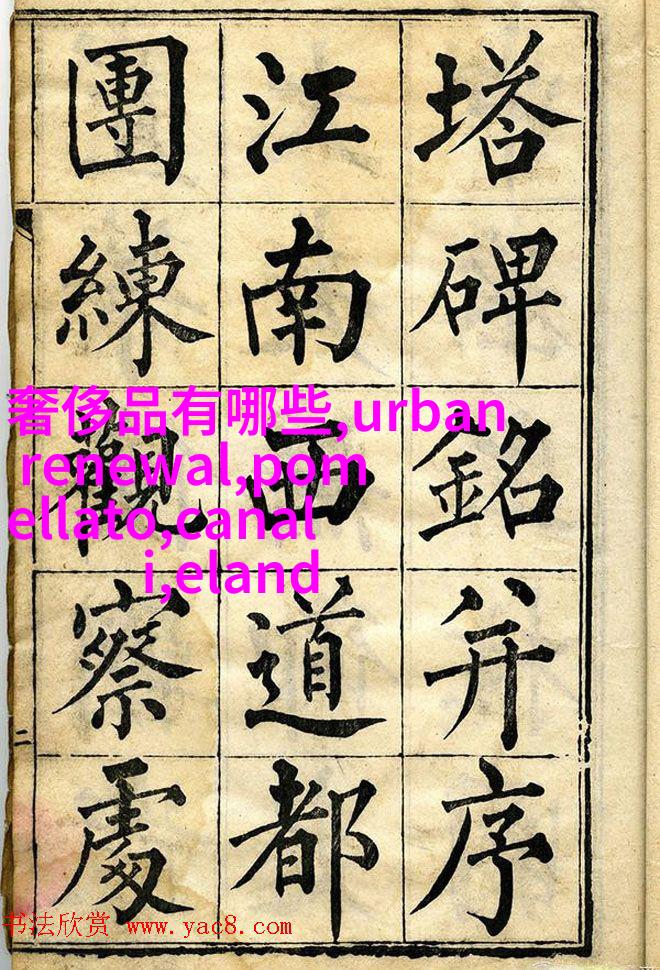 塔碑銘并序
江南西道都
團練觀察處
二
奢侈品有哪些,urban
renewal,pom
ellato,canal
i,eland
书法欣赏 www.yac8.com